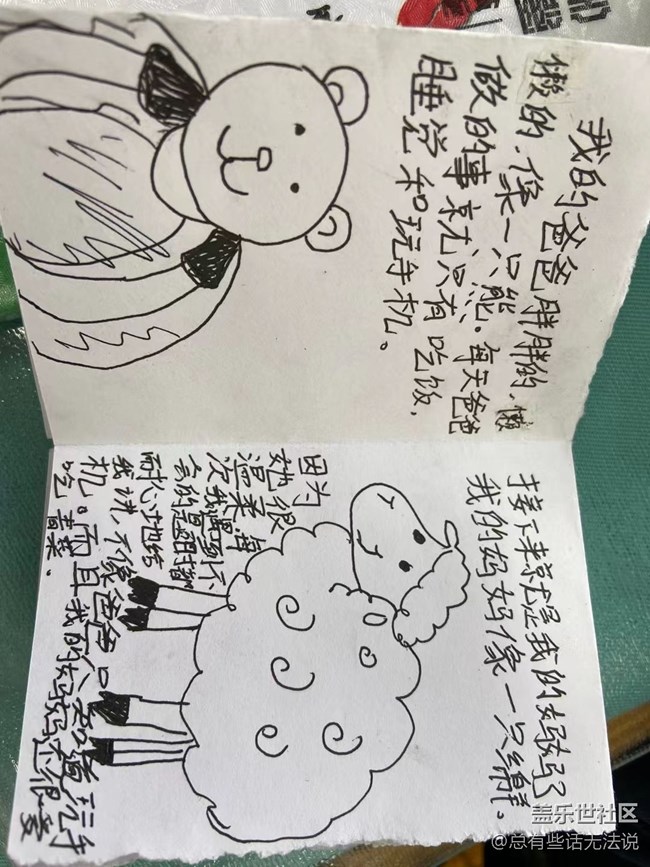 我的爸爸胖胖的、懒
懒的,像一只熊。每天爸爸
做的事就只有吃饭,
睡觉和玩手机。
接下来就是我的妈妈了
我的妈妈像一只绵羊。
因为
她很
温柔,每
次我遇到不
会的题时都
耐心地给
我讲,不像爸爸只会知道玩手
机。而且我的妈妈也很爱
吃青菜.
盖乐世社区
@总有些话无法说